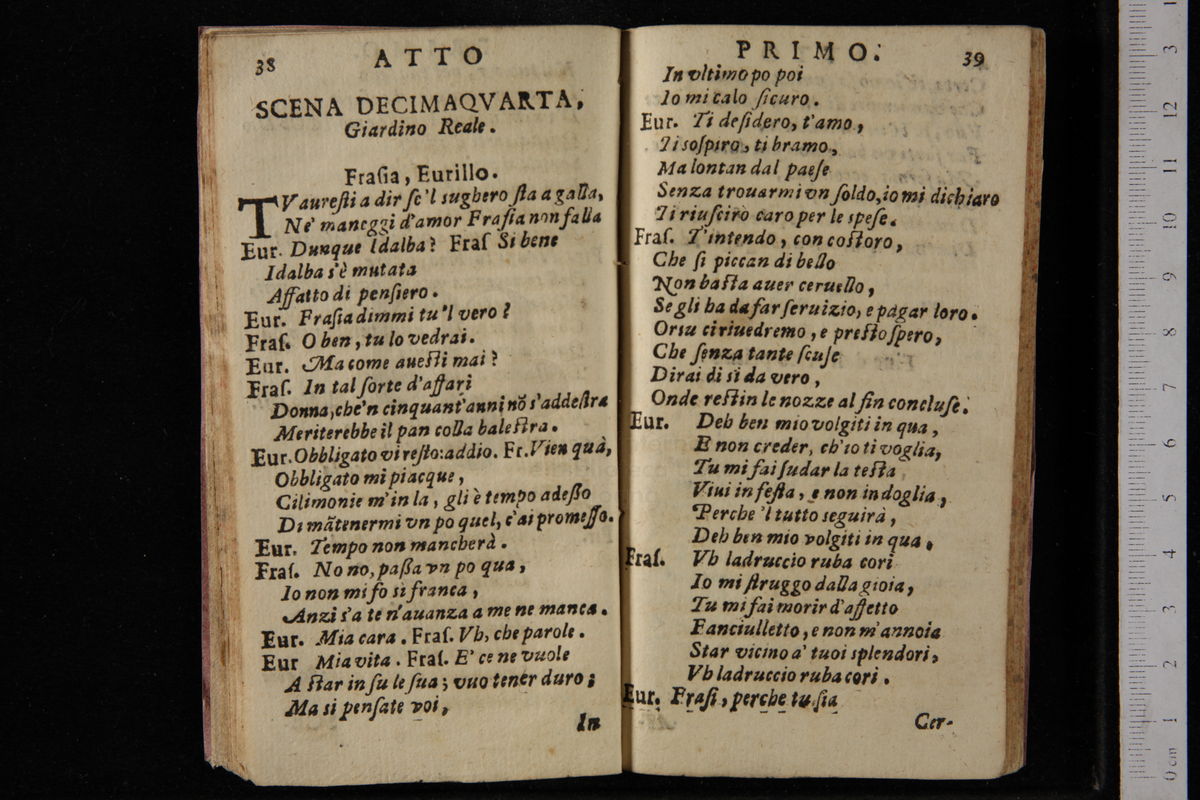 38
ATTO
SCENA DECIMAQVARTA,
Giardino Reale.
Fraſia, Eurillo.
TV aureſti a dir ſe'l sughero ſta a galla,
Ne' maneggi d'amor Fraſia non falla
Eur. Dunque Idalba? Fraſ Si bene
Idalba s'è mutata
Affatto di penſiero.
Eur. Fraſia dimmi tu 'l vero?
Fraſ. O ben, tu lo vedrai.
Eur. Ma come aueſti mai?
Fraſ. In tal ſorte d'affari
Donna, che'n cinquant'anni nõ s'addeſtra
Meriterebbe il pan colla baleſtra.
Eur. Obbligato vi reſto: addio. Fr. Vien quà,
Obbligato mi piacque,
Cilimonie m'in la, gli è tempo adeſſo
Di mãtenermi vn po quel, c'ai promeſſo.
Eur. Tempo non mancherà.
Fraſ. No no, paſſa vn po qua,
Io non mi fo sì franca,
Anzi s'a te n'auanza a me ne manca.
Eur. Mia cara. Fraſ. Vh, che parole.
Eur Mia vita. Fraſ. E' ce ne vuole
A ſtar in ſu le ſua; vuo tener duro;
Ma si penſate voi,
In
PRIMO.
39
In vltimo po poi
Io mi calo ſicuro.
Eur. Ti deſidero, t'amo,
Ti soſpiro, ti bramo,
Ma lontan dal paeſe
Senza trouarmi vn ſoldo, io mi dichiaro
Ti riuſcirò caro per le speſe.
Fraſ. T'intendo, con coſtoro,
Che ſi piccan di bello
Non baſta auer ceruello,
Se gli ha da far ſeruizio, e pagar loro.
Orsu ci riuedremo, e preſto ſpero,
Che ſenza tante ſcuſe
Dirai di sì da vero,
Onde reſtin le nozze al fin concluſe.
Eur. Deh ben mio volgiti in qua,
E non creder, ch'io ti voglia,
Tu mi fai ſudar la teſta
Viui in feſta, e non in doglia,
Perche 'l tutto seguirà,
Deh ben mio volgiti in qua.
Fraſ. Vh ladruccio ruba cori
Io mi ſtruggo dalla gioia,
Tu mi fai morir d'affetto
Fanciulletto, e non m'annoia
Star vicino a' tuoi splendori,
Vh ladruccio ruba cori.
Eur. Fraſi, perche tu ſia
Cer-